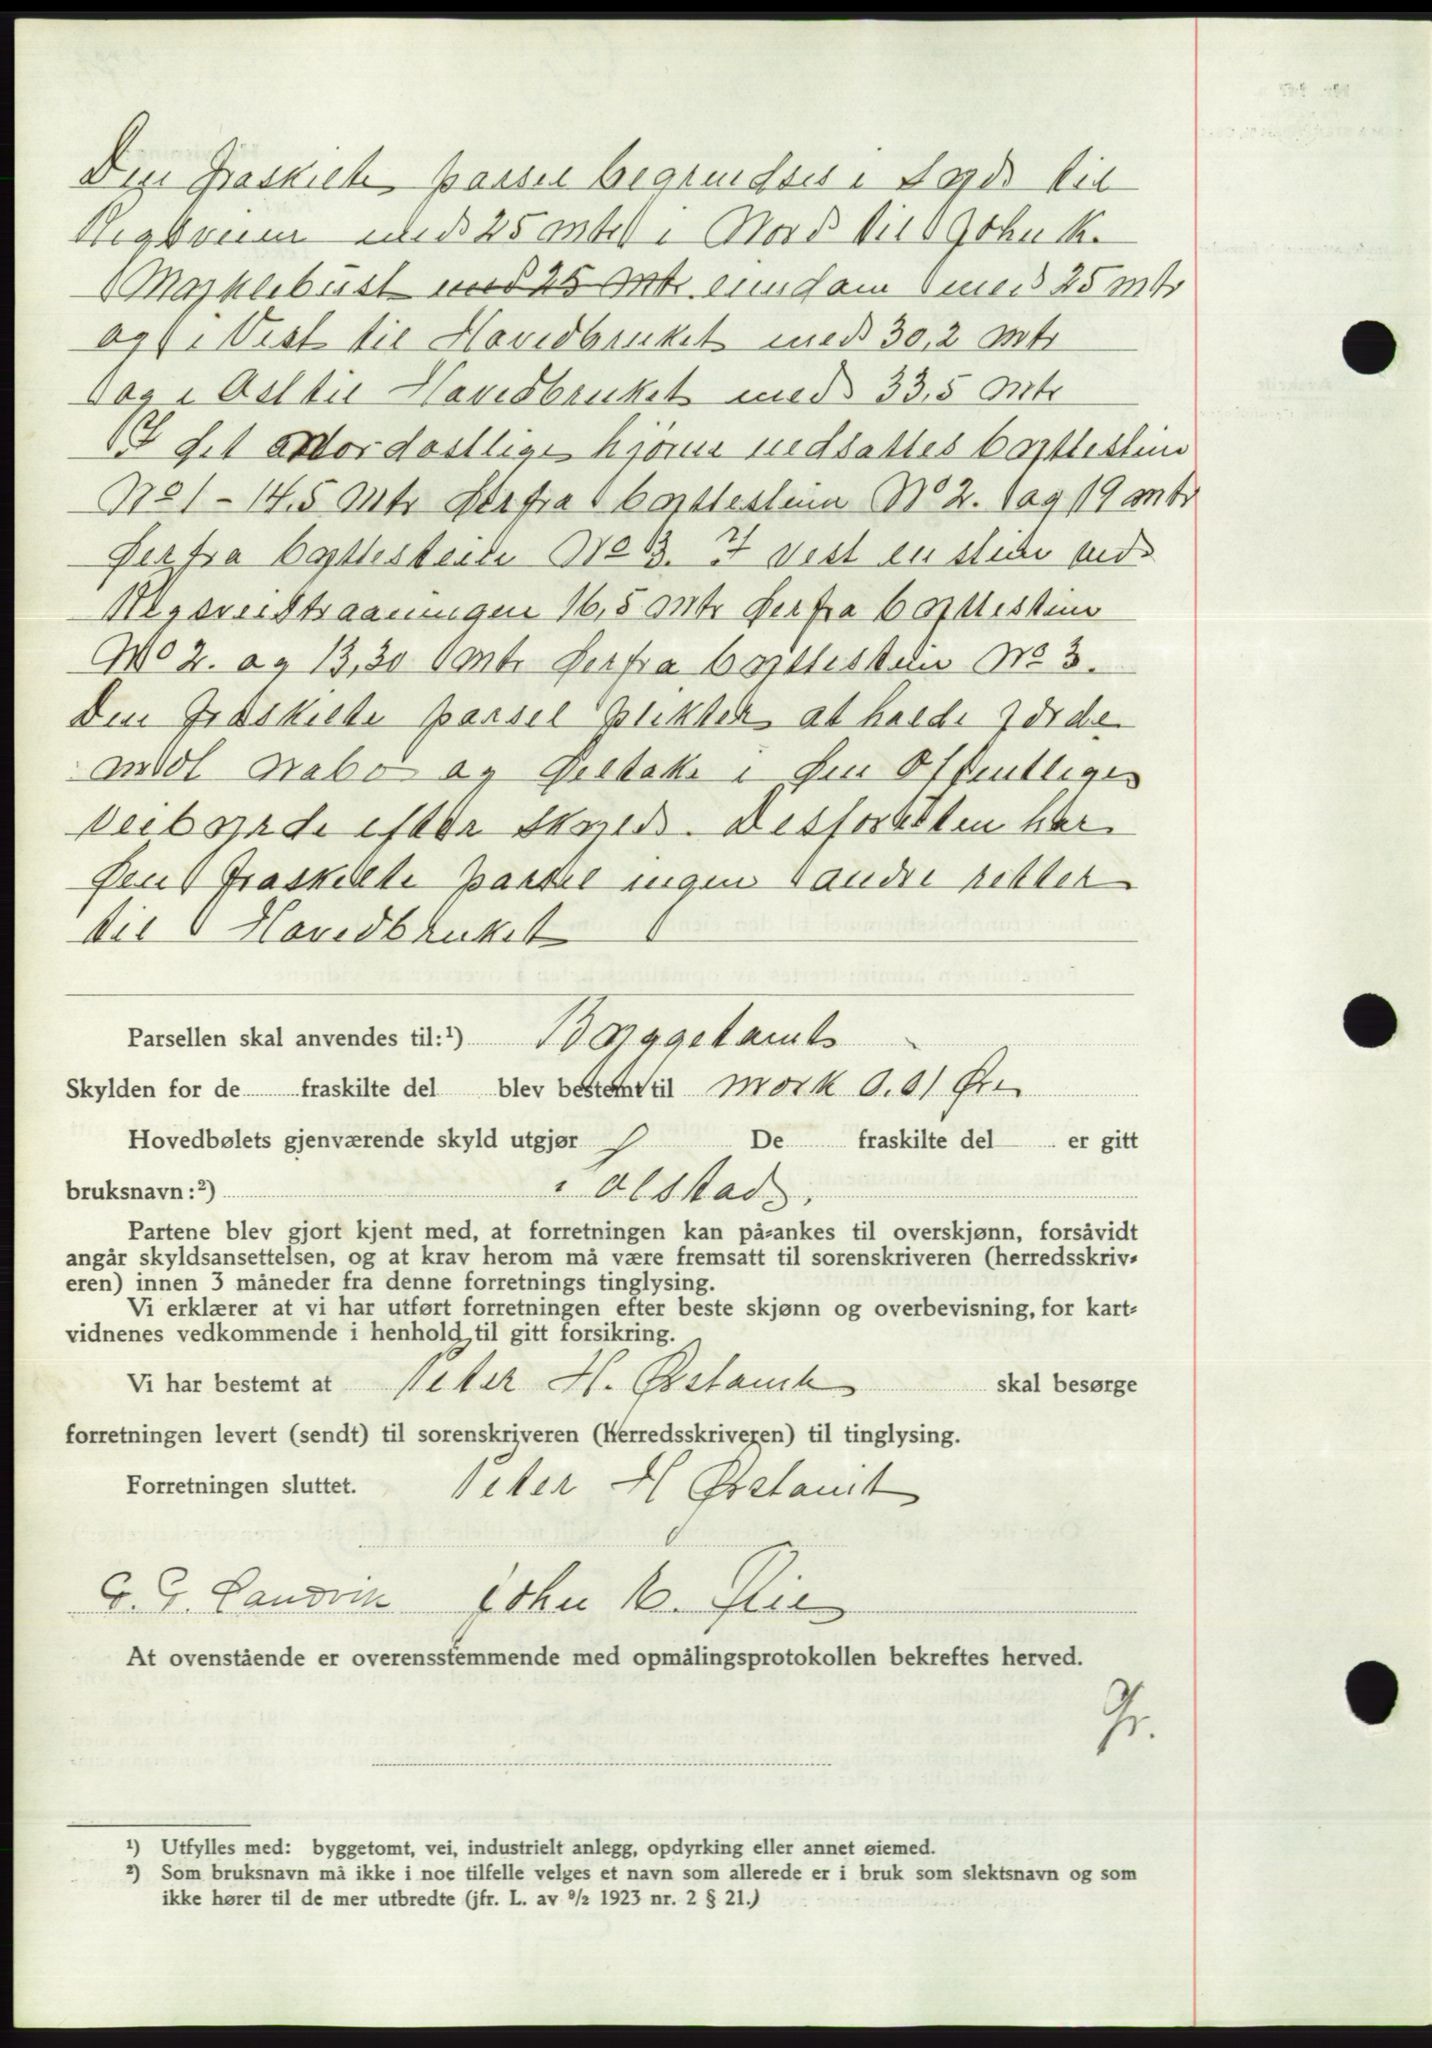 Den fraskilte parsel begrendses i Syd til
Rigsveien med 25 mtr i Nord til John K.
Myklebust med 25 mtr. eiendom med 25 mtr
og i Vest til Hovedbruket med 30,2 mtr
og i Ost til Hovedbruket med 33,5 mtr
I det Nordostlige hjørne nedsattes byttestein
No 1 - 14,5 mtr derfra byttestein No 2. og 19 mtr
derfra byttestein No 3. I vest en stein ved
16,5 mtr derfra byttestein
No 2. og 13,30 mtr derfra byttestein No 3.
Den fraskilte parsel plikter at holde jorde
mot nabo og deltake i den Offentlige
veibyrde efter skyld. Desforuten har
den fraskilte parsel ingen andre retter
til Hovedbruket
Parsellen skal anvendes til:¹) Byggetomt
Skylden for de fraskilte del blev bestemt til mark 0.01 Øre
Hovedbølets gjenværende skyld utgjør De fraskilte del er gitt
bruksnavn:²) Solstad.
Partene blev gjort kjent med, at forretningen kan på-ankes til overskjønn, forsåvidt
angår skyldsansettelsen, og at krav herom må være fremsatt til sorenskriveren (herredsskriv-
eren) innen 3 måneder fra denne forretnings tinglysing.
Vi erklærer at vi har utført forretningen efter beste skjønn og overbevisning, for kart-
vidnenes vedkommende i henhold til gitt forsikring.
Vi har bestemt at Peter H. Ørstavik skal besørge
forretningen levert (sendt) til sorenskriveren (herredsskriveren) til tinglysing.
Forretningen sluttet. Peter H Ørstavik
G. G. Sandvik John E. Flie
At ovenstående er overensstemmende med opmålingsprotokollen bekreftes herved.
Gr.
¹) Utfylles med: byggetomt, vei, industrielt anlegg, opdyrking eller annet øiemed.
²) Som bruksnavn må ikke i noe tilfelle velges et navn som allerede er i bruk som slektsnavn og som
ikke hører til de mer utbredte (jfr. L. av ⁹/₂ 1923 nr. 2 § 21.)